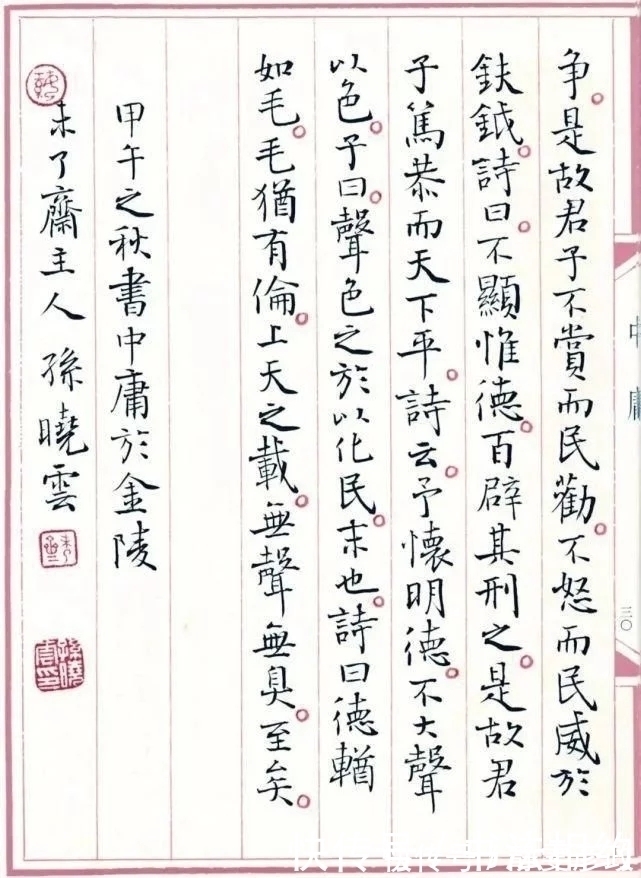 中庸
三〇
争。是故君子不賞而民勸。不怒而民威於
鈇鉞。詩曰。不顯惟德。百辟其刑之。是故君
子篤恭而天下平。詩云。予懷明德。不大聲
以色。子曰。聲色之於以化民。末也。詩曰德輶
如毛。毛猶有倫。上天之載。無聲無臭。至矣。
甲午之秋書中庸於金陵
未了齋主人 孫曉雲
孫曉雲印